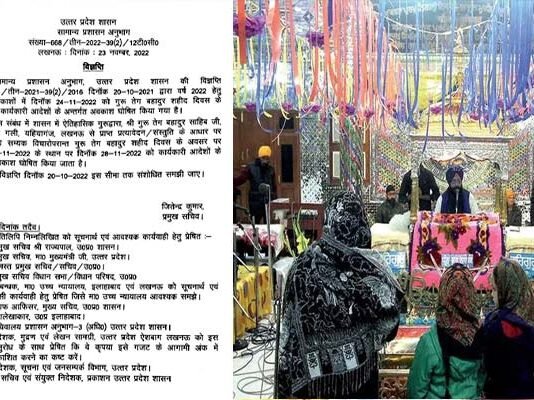 उत्तर प्रदेश शासन
सामान्य प्रशासन अनुभाग
संख्या-668/तीन-2022-39(2)/12टी०सी०
लखनऊ : दिनांक : 23 नवम्बर, 2022
विज्ञप्ति
मान्य प्रशासन अनुभाग, उत्तर प्रदेश शासन की विज्ञप्ति
/तीन-2021-39(2)/2016 दिनाँक 20-10-2021 द्वारा वर्ष 2022 हेतु
काशों में दिनाँक 24-11-2022 को गुरू तेग बहादुर शहीद दिवस के
कार्यकारी आदेशों के अन्तर्गत अवकाश घोषित किया गया है।
संबंध में शासन में ऐतिहासिक गुरूद्वारा, श्री गुरू तेग बहादुर साहिब जी,
गली, यहियागंज, लखनऊ से प्राप्त प्रत्यावेदन/संस्तुति के आधार पर
सम्यक विचारोपरान्त गुरू तेग बहादुर शहीद दिवस के अवसर पर
-11-2022 के स्थान पर दिनाँक 28-11-2022 को कार्यकारी आदेशों के
काश घोषित किया जाता है।
विज्ञप्ति दिनाँक 20-10-2022 इस सीमा तक संशोधित समझी जाए।
जितेन्द्र कुमार,
प्रमुख सचिव।
दिनांक तदैव।
तिलिपि निम्नलिखित को सूचनार्थ एवं आवश्यक कार्यवाही हेतु प्रेषित :-
मुख सचिव श्री राज्यपाल, उ0प्र0 शासन।
मुख सचिव, मा0 मुख्यमंत्री जी, उत्तर प्रदेश।
स्त प्रमुख सचिव/सचिव/उ0प्र0।
मुख सचिव विधान सभा/विधान परिषद, उ0प्र0
बन्धक, मा0 उच्च न्यायालय, इलाहाबाद एवं लखनऊ को सूचनार्थ एवं
कार्यवाही हेतु प्रेषित जिसे मा0 उच्च न्यायालय आवश्यक समझे।
ाफ आफिसर, मुख्य सचिव, उ0प्र0 शासन।
ालेखाकार, उ0प्र इलाहाबाद।
चिवालय प्रशासन अनुभाग-3 (अधि0) उत्तर प्रदेश शासन।
देशक, मुद्रण एवं लेखन सामग्री, उत्तर प्रदेश ऐशबाग लखनऊ को इस
नुरोध के साथ प्रेषित कि वे कृपया इसे गजट के आगामी अंक में
काशित करने का कष्ट करें।
देशक, सूचना एवं जनसम्पर्क विभाग, उत्तर प्रदेश।
सचिव एवं संयुक्त निदेशक, प्रकाशन उत्तर प्रदेश शासन